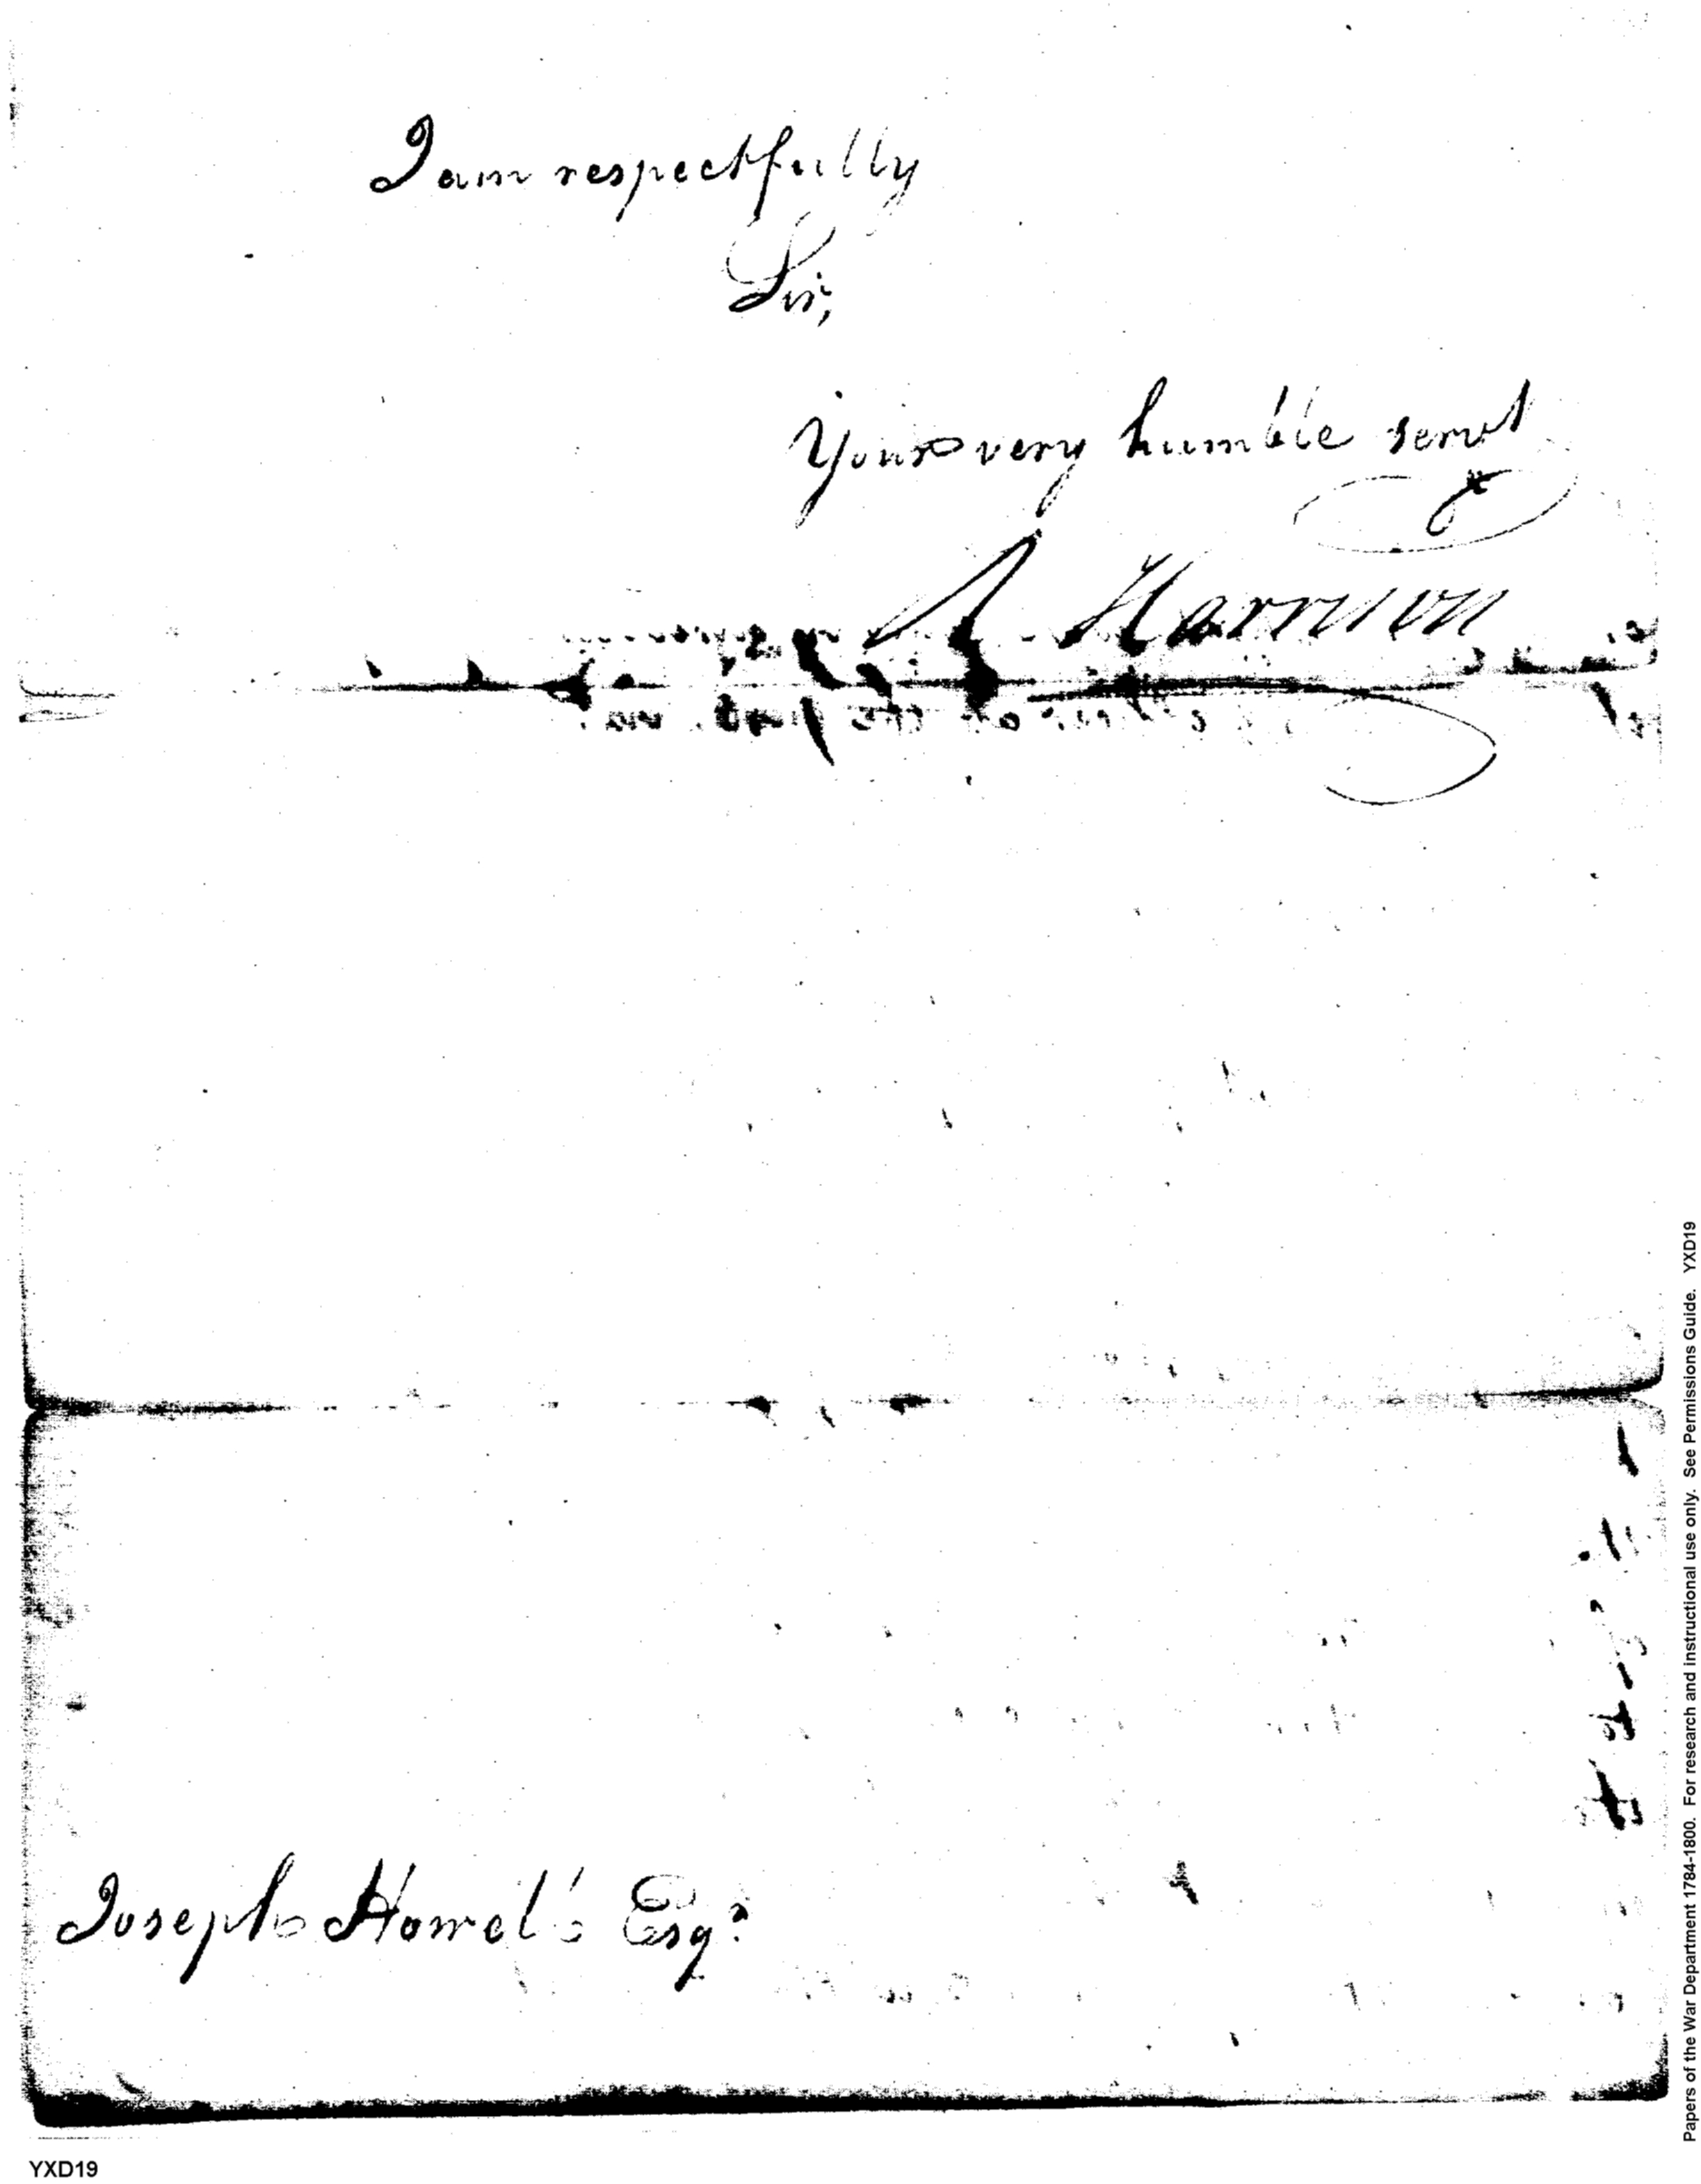 I am respectfully
Sir,
Your very humble servt
Harrison
Joseph Howell Esqr
Papers of the War Department 1784-1800. For research and instructional use only. See Permissions Guide. YXD19
YXD19